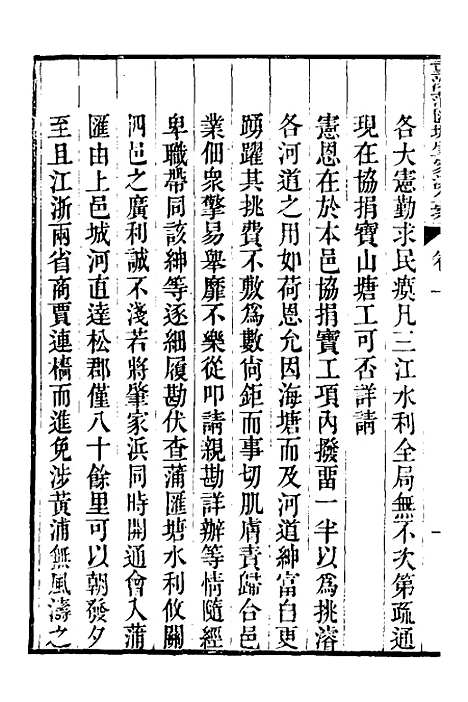 各大憲勤求民瘼凡三江水利全局無不次第疏通
現在協捐寶山塘工可否詳請
憲恩在於本邑協捐寶工項內撥畱一半以爲挑濬
各河道之用如荷恩允因海塘而及河道紳富自更
踴躍其挑費不敷爲數尙鉅而事切肌膚責歸台邑
業佃衆擎易舉靡不樂從叩請親勘詳辦等情隨經
卑職帶同該紳等逐細履勘伏查蒲匯塘水利攸關
泗邑之廣利誠不淺若將肇家浜同時開通會入蒲
匯由上邑城河直達松郡僅八十餘里可以朝發夕
至且江浙兩省商賈連檣而進免涉黃浦無風濤之